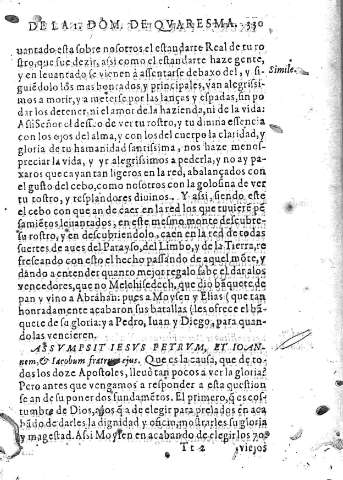 DE LA 1. DOM. DE QVARESMA. 330
uantado esta sobre nosotros el estandarte Real de tu ro
stro, que fue dezir, assi como el estandarte haze gente,
y en leuantadose vienen à assentarse debaxo del, y si-
guiendolo los mas honrados y principales, van alegrissi
mos a morir, y a meterse por las lanças y espadas, sin po
dar los detener, ni el amor de la hazienda, ni de la vida:
Assi Señor el desseo de ver tu rostro, y tu diuina essencia
con los ojos del alma, y con los del cuerpo la claridad, y
gloria de tu humanidad santissima, nos haze menos-
preciar la vida, y yr alegrissimos a perderla, y no ay pa-
xaros que cayan tan ligeros en la red, abalançados con
el gusto del ceuo, como nosotros con la golosina de ver
tu rostro, y resplandores diuinos. Y assi, siendo este
el cebo con que an de caer en la red los que tuuierē pē
samiētos leuantados, en este mesmo monte descubre
su rostro, y en descubriendolo, caen en la red de todas
suertes de aues del Parayso, del Limbo, y de la Tierra, re
frescando con esto el hecho passando de aquel mōte, y
dando a entender quanto mejor regalo sabe el dar a los
vencedores, que no Melchisedech, que dio bāquete de
pan y vino a Abrahan: pues a Moysen y Elias (que tan
honradamente acabaron sus batallas) les ofrece el bā-
quete de su gloria: y a Pedro, Iuan y Diego, para quan-
do las vencieren.
ASSVMPSIT IESVS PETRVM, ET IOAN-
nem, & Iacobum fratrem ejus. Que es la causa, que de to-
dos los doze Apostoles, lleuò tan pocos a ver la gloria?
Pero antes que vengamos a responder a esta question
se an de suponer dos fundamētos. El primero, q̄ es cos-
tumbre de Dios, a los q̄ a de elegir para prelados en aca
bādo de darles la dignidad y oficio, mostrarles su gloria
y magestad. Assi Moysen en acabando de elegir los 70.
Tt 2 viejos
Simile.